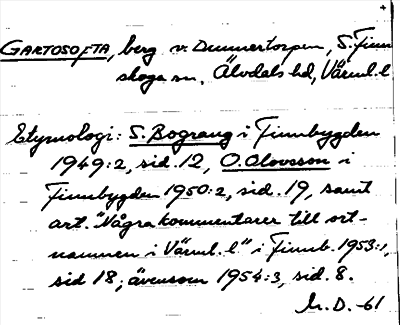 GARTOSOFTA, berg v. Dunnertorpen, S. Finn
skoga sn, Älvdals hd, Värml. l.
Etymologi: S. Bograng i Finnbygden
1949:2, sid. 12, O. Olovsson i
Finnbygden 1950:2, sid. 19, samt
art. "Några kommentarer till ort-
namnen i Värml. l" i Finnb. 1953:1,
sid 18; ävensom 1954:3, sid. 8.
D. -61